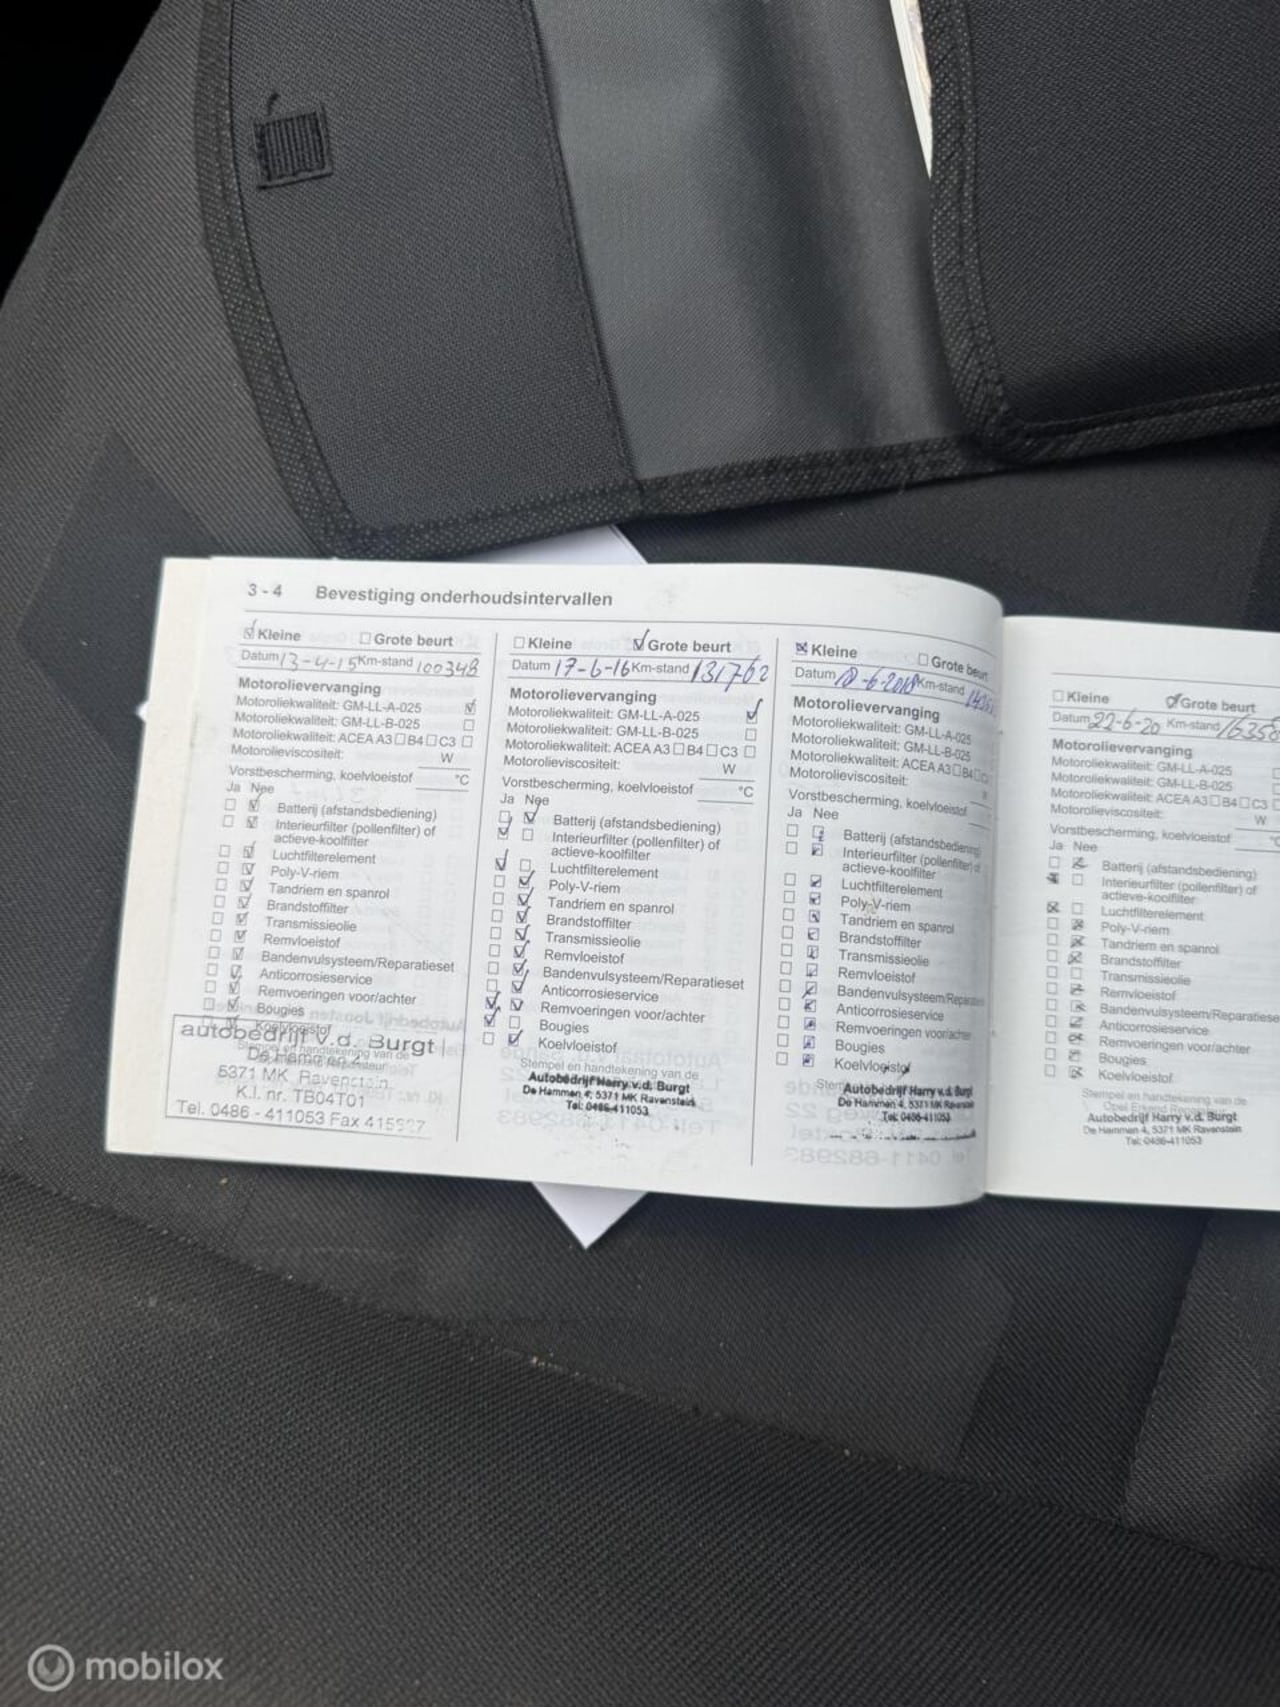 3 - 4 Bevestiging onderhoudsintervallen
Kleine Grote beurt
Datum 13-4-15 Km-stand 100348
Motorolievervanging
Motoroliekwaliteit: GM-LL-A-025
Motoroliekwaliteit: GM-LL-B-025
Motoroliekwaliteit: ACEA A3 B4 C3
Motorolieviscositeit: W
Vorstbescherming, koelvloeistof °C
Ja Nee
Batterij (afstandsbediening)
Interieurfilter (pollenfilter) of
actieve-koolfilter
Luchtfilterelement
Poly-V-riem
Tandriem en spanrol
Brandstoffilter
Transmissieolie
Remvloeistof
Bandenvulsysteem/Reparatieset
Anticorrosieservice
Remvoeringen voor/achter
Bougies
Koelvloeistof
autobedrijf v.d. Burgt
Stempel en handtekening van de
De Hammen 4
5371 MK Ravenstein
K.I. nr. TB04T01
Tel. 0486 - 411053 Fax
Kleine Grote beurt
Datum 17-6-16 Km-stand 131762
Motorolievervanging
Motoroliekwaliteit: GM-LL-A-025
Motoroliekwaliteit: GM-LL-B-025
Motoroliekwaliteit: ACEA A3 B4 C3
Motorolieviscositeit: W
Vorstbescherming, koelvloeistof °C
Ja Nee
Batterij (afstandsbediening)
Interieurfilter (pollenfilter) of
actieve-koolfilter
Luchtfilterelement
Poly-V-riem
Tandriem en spanrol
Brandstoffilter
Transmissieolie
Remvloeistof
Bandenvulsysteem/Reparatieset
Anticorrosieservice
Remvoeringen voor/achter
Bougies
Koelvloeistof
Stempel en handtekening van de
Autobedrijf Harry v.d. Burgt
De Hammen 4, 5371 MK Ravenstein
Tel: 0486-411053
Kleine Grote beurt
Datum Km-stand
Motorolievervanging
Motoroliekwaliteit: GM-LL-A-025
Motoroliekwaliteit: GM-LL-B-025
Motoroliekwaliteit: ACEA A3 B4
Motorolieviscositeit:
Vorstbescherming, koelvloeistof
Ja Nee
Batterij (afstandsbediening)
Interieurfilter (pollenfilter) of
actieve-koolfilter
Luchtfilterelement
Poly-V-riem
Tandriem en spanrol
Brandstoffilter
Transmissieolie
Remvloeistof
Bandenvulsysteem/Reparatieset
Anticorrosieservice
Remvoeringen voor/achter
Bougies
Koelvloeistof
Autobedrijf Harry v.d. Burgt
De Hammen 4, 5371 MK Ravenstein
Tel: 0486-411053
Kleine Grote beurt
Datum 22-6-20 Km-stand 16358
Motorolievervanging
Motoroliekwaliteit: GM-LL-A-025
Motoroliekwaliteit: GM-LL-B-025
Motoroliekwaliteit: ACEA A3 B4 C3
Motorolieviscositeit: W
Vorstbescherming, koelvloeistof
Ja Nee
Batterij (afstandsbediening)
Interieurfilter (pollenfilter) of
actieve-koolfilter
Luchtfilterelement
Poly-V-riem
Tandriem en spanrol
Brandstoffilter
Transmissieolie
Remvloeistof
Bandenvulsysteem/Reparatiese
Anticorrosieservice
Remvoeringen voor/achter
Bougies
Koelvloeistof
Stempel en handtekening van de
Autobedrijf Harry v.d. Burgt
De Hammen 4, 5371 MK Ravenstein
Tel: 0486-411053
mobilox